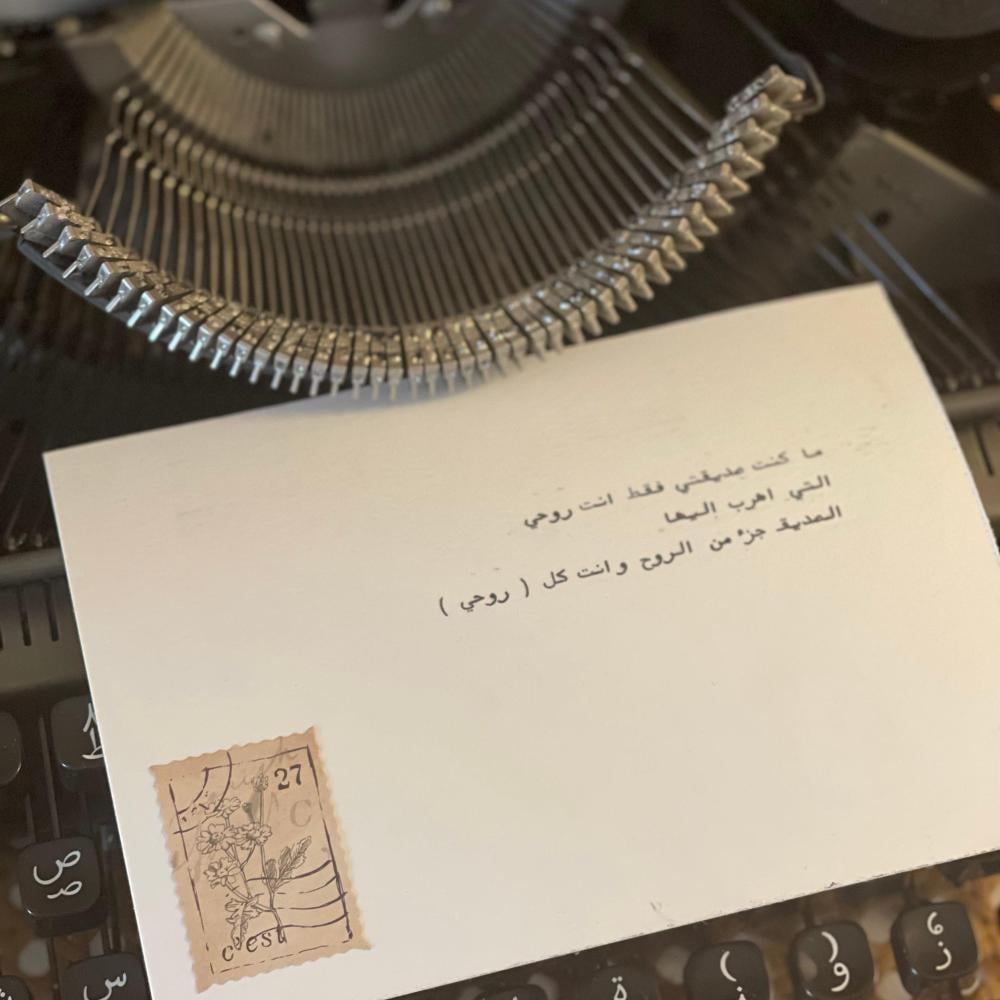 ما كنت صديقتي فقط انت روحي
التي اهرب اليها
الصديق جزء من الروح وانت كل ( روحي )
27
C
c'est
ص
ص
س
ة
و